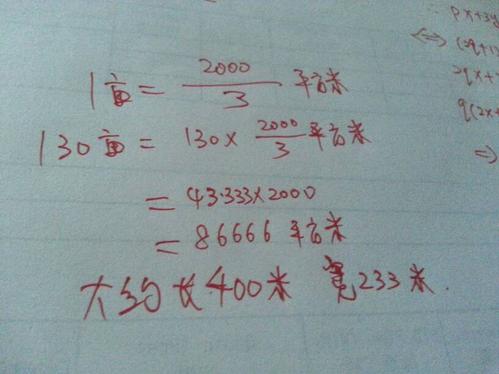 1亩= 2000/3 平方米
130亩= 130× 2000/3 平方米
= 43.333×2000
= 86666 平方米
大约长400米 宽233米.
px+3y